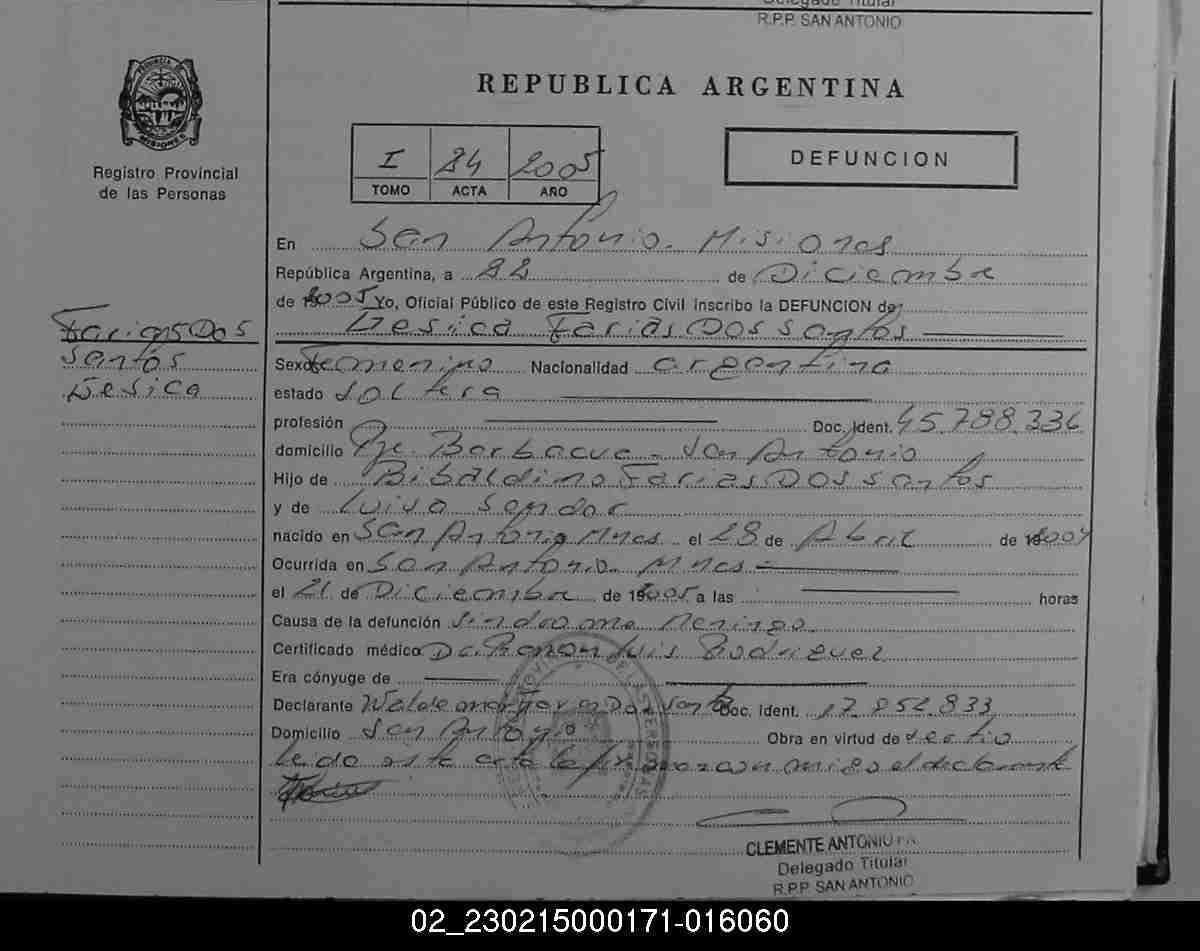 Delegado Titular
R.P.P. SAN ANTONIO
REPUBLICA ARGENTINA
PROVINCIA
MISIONES
Registro Provincial
de las Personas
I 84 2005
TOMO ACTA AÑO
DEFUNCION
En San Antonio. Misiones
República Argentina, a 22 de Diciembre
de 2005 Yo, Oficial Público de este Registro Civil inscribo la DEFUNCION de
Yesica Farias Dos santos
Farias Dos
santos
Yesica
Sexo Femenino Nacionalidad argentina
estado soltera
profesión Doc. Ident. 45.788.336
domicilio Pje. Barbacua - San Antonio
Hijo de Bibaldino Farias Dos santos
y de Luisa
nacido en San Antonio Mnes el 28 de Abril de 2004
Ocurrida en San Antonio. Mnes
el 21 de Diciembre de 2005 a las horas
Causa de la defunción sindrome Meningo
Certificado médico Dr. Ramon Luis Rodriguez
Era cónyuge de
Declarante Waldemar Farias Dos santos Doc. Ident. 17.852.833
Domicilio San Antonio Obra en virtud de
Leida esta acta la firma conmigo el declarante
CLEMENTE ANTONIO
Delegado Titular
R.P.P. SAN ANTONIO
02_230215000171-016060